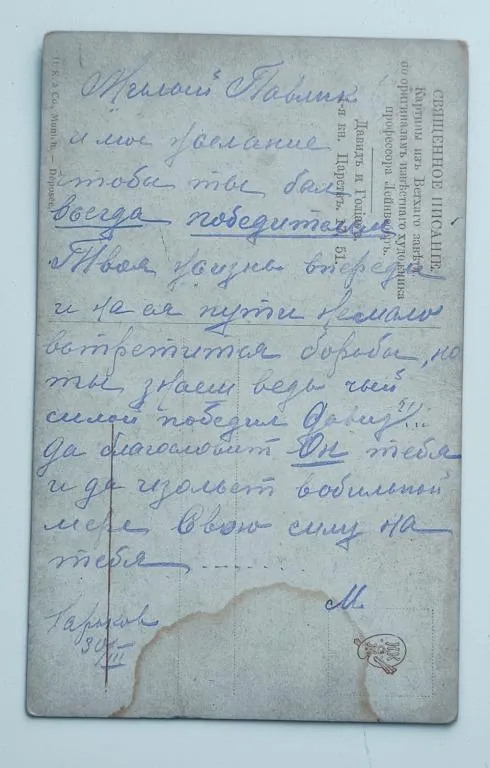 Милый Павлик
и мое желание
чтобы ты был
всегда победителем
Твоя жизнь впереди
и на ея пути не мало
встретится борьбы, но
ты знаеш ведь чьей
силой победил Давид
да благословит Он тебя
и да изольет в обильной
мере Свою силу на
тебя
М.
Харьков
30/III
СВЯЩЕННОЕ ПИСАНІЕ.
Картины изъ Ветхаго завѣта
по оригиналамъ извѣстнаго художника
профессора Лейнвеберъ.
Давидъ и Голіаѳъ
1-я кн. Царствъ, 17, 51.
& Co., Munich. — Déposée.